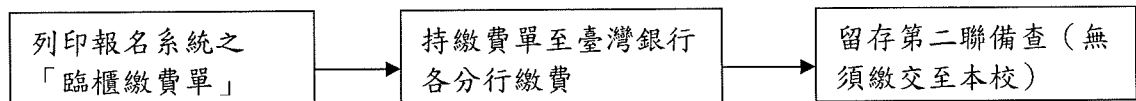 列印報名系統之
「臨櫃繳費單」
持繳費單至臺灣銀行
各分行繳費
留存第二聯備查（無
須繳交至本校）